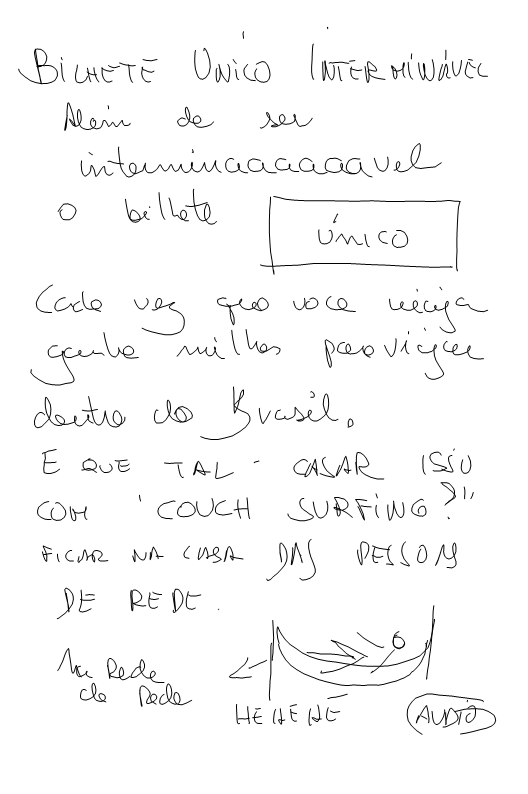 BILHETE ÚNICO INTERMINÁVEL
Além de ser
interminaaaaaaavel
o bilhete ÚNICO
Cada vez que voce viaja
ganha milhas para viajar
dentro do Brasil.
E QUE TAL - CASAR ISSO
COM "COUCH SURFING?"
FICAR NA CASA DAS PESSOAS
DE REDE.
Na Rede
de Rede
HEHEHE
AUDIO